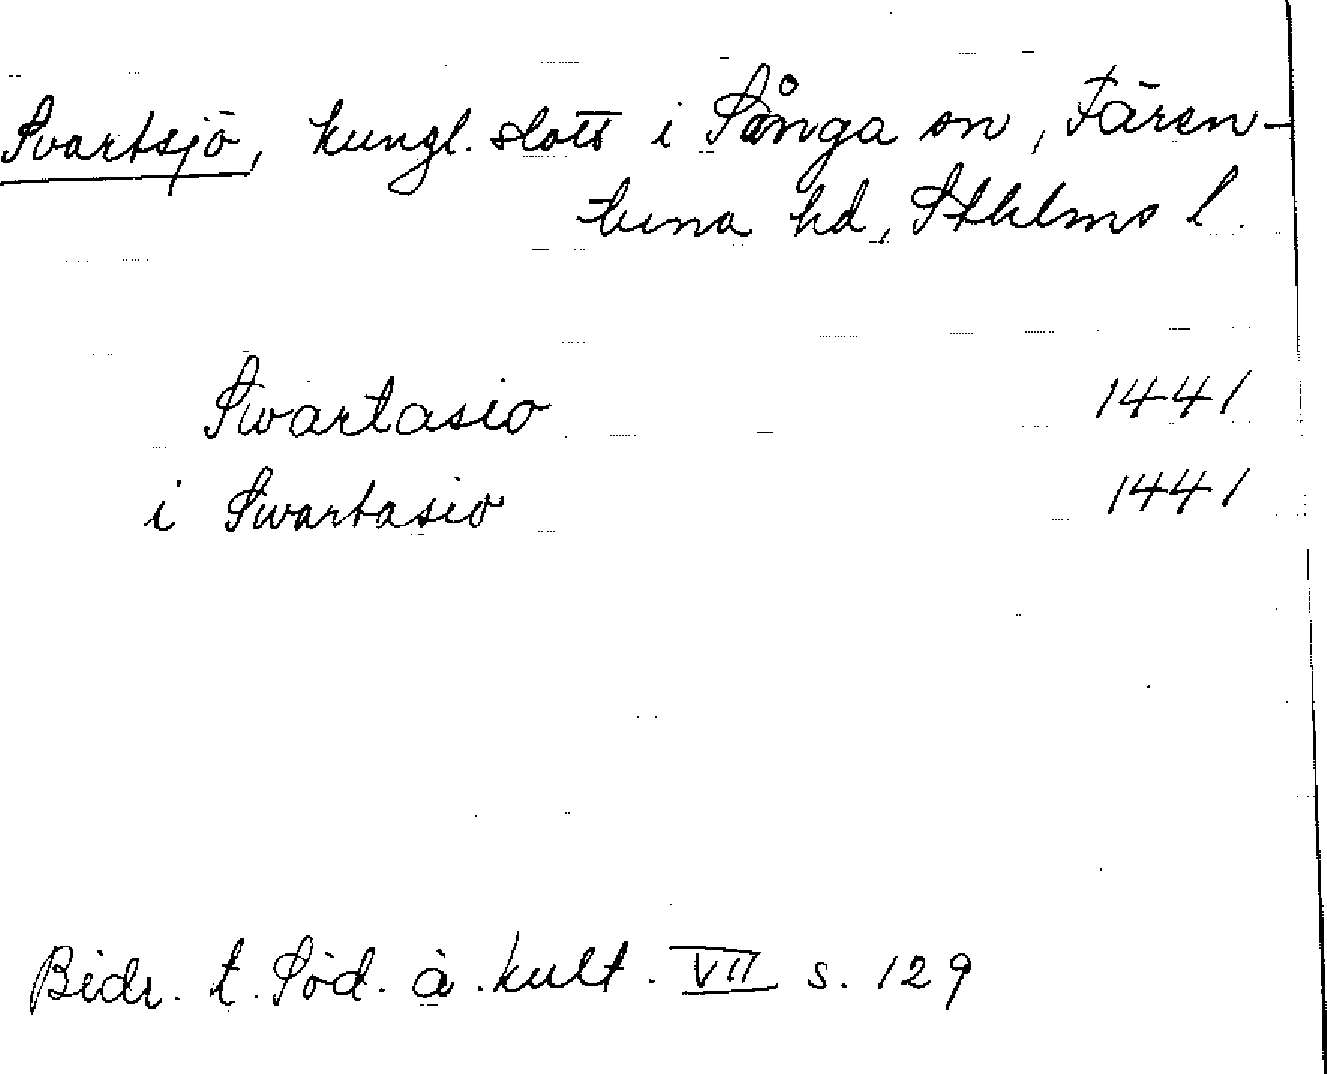 Svartsjö, kungl. slott i Sånga sn, Fären-
tuna hd, Sthlms l.
Swartasio 1441
i Swartasio 1441
Bidr. t. Söd. ä. kult. VII s. 129